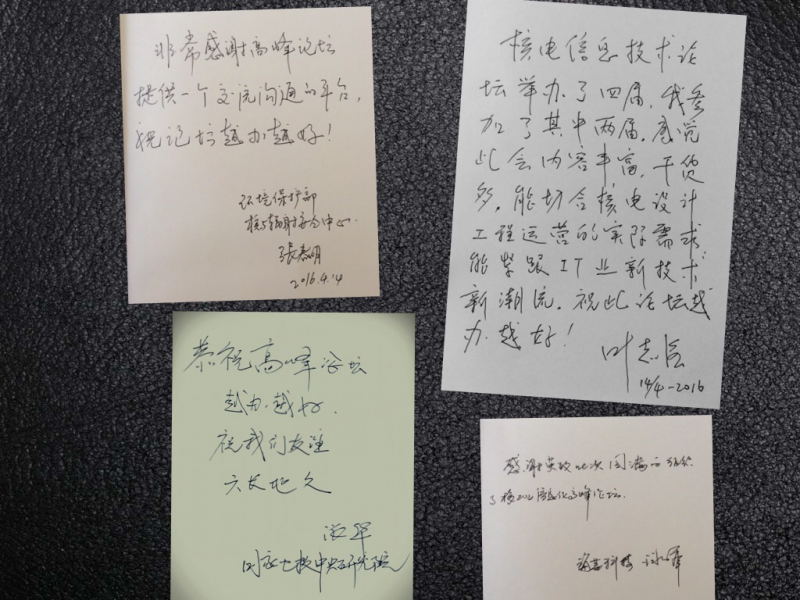 非常感谢高峰论坛
提供一个交流沟通的平台，
祝论坛越办越好！
环境保护部
核与辐射安全中心
2016.4.14
核电信息技术论
坛举办了四届，我参
加了其中两届，感觉
此会内容丰富，干货
多，能切合核电设计
工程运营的实际需求
能紧跟IT业新技术
新潮流。祝此论坛越
办越好！
叶志强
14/4-2016
恭祝高峰论坛
越办越好.
祝我们友谊
天长地久
国家电投中央研究院
感谢 此次圆满 组织
了核工业信息化高峰论坛.
科技